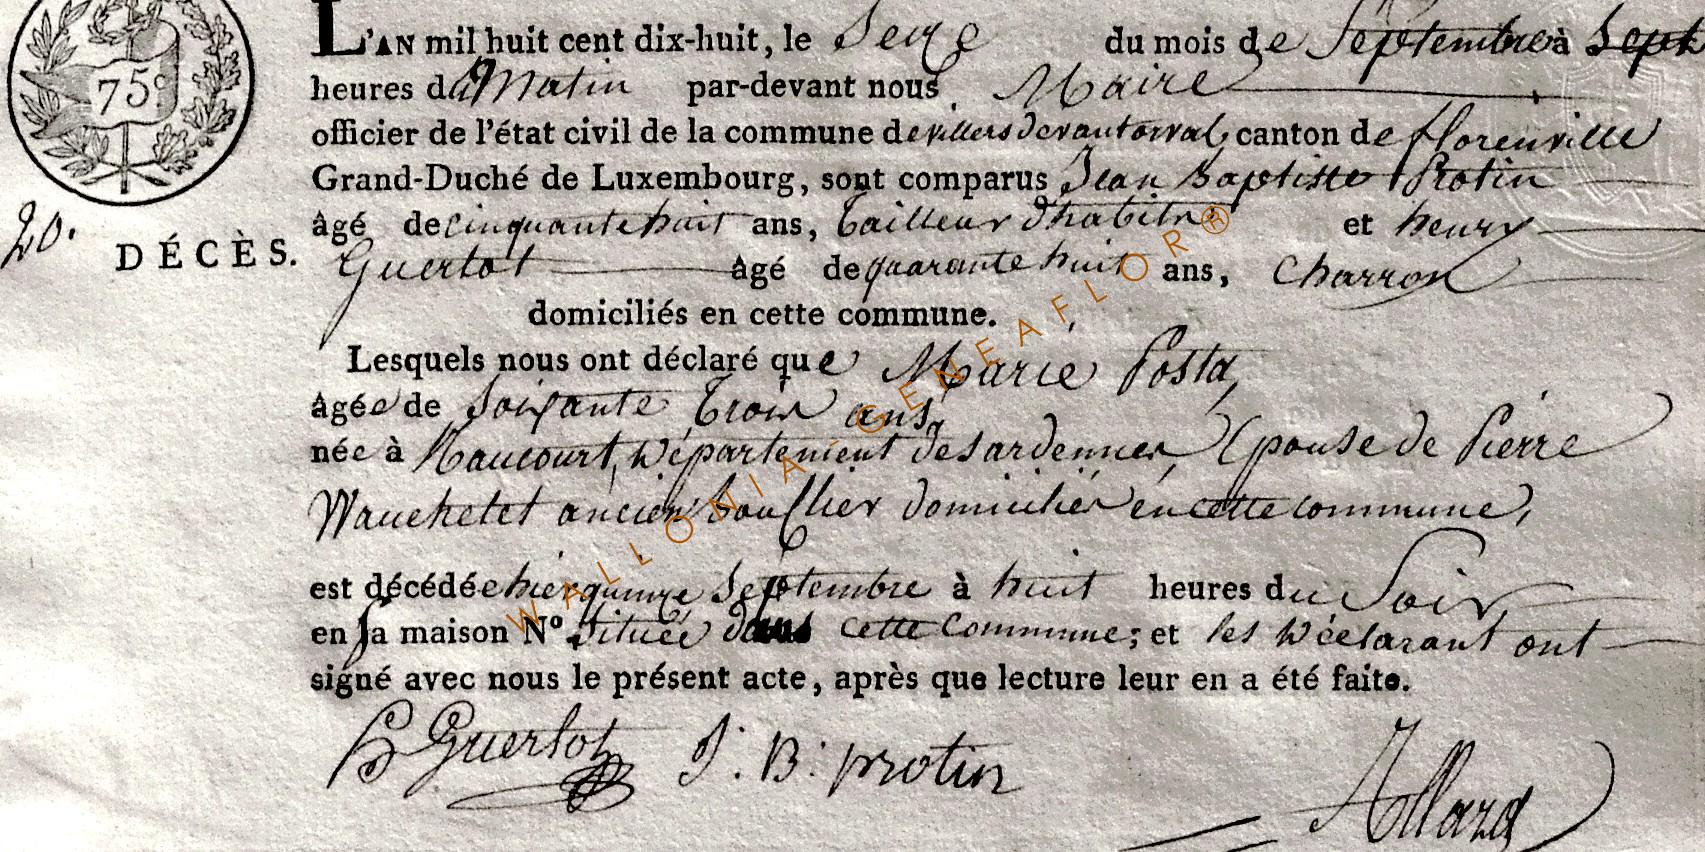 L'AN mil huit cent dix-huit, le Seize du mois de Septembre à Sept
75c
heures du Matin par-devant nous Maire
officier de l'état civil de la commune de villers devant orval, canton de florenville
Grand-Duché de Luxembourg, sont comparus Jean Baptiste Protin
20.
DÉCÈS.
âgé de cinquante huit ans, Tailleur d'habits et henry
Guerlot âgé de quarante huit ans, Charron
domiciliés en cette commune.
Lesquels nous ont déclaré que Marie Posta,
âgée de Soixante Trois ans,
née à Raucourt, Département des ardennes, Epouse de Pierre
Wauchelet ancien domiciliés en cette commune,
est décédée hier quinze Septembre à huit heures du Soir
en Sa maison N.º Située dans cette Commune; et les Déclarant ont
signé avec nous le présent acte, après que lecture leur en a été faite.
H Guerlot J. B. protin
Allard
WALLONIA GENEAFLOR®